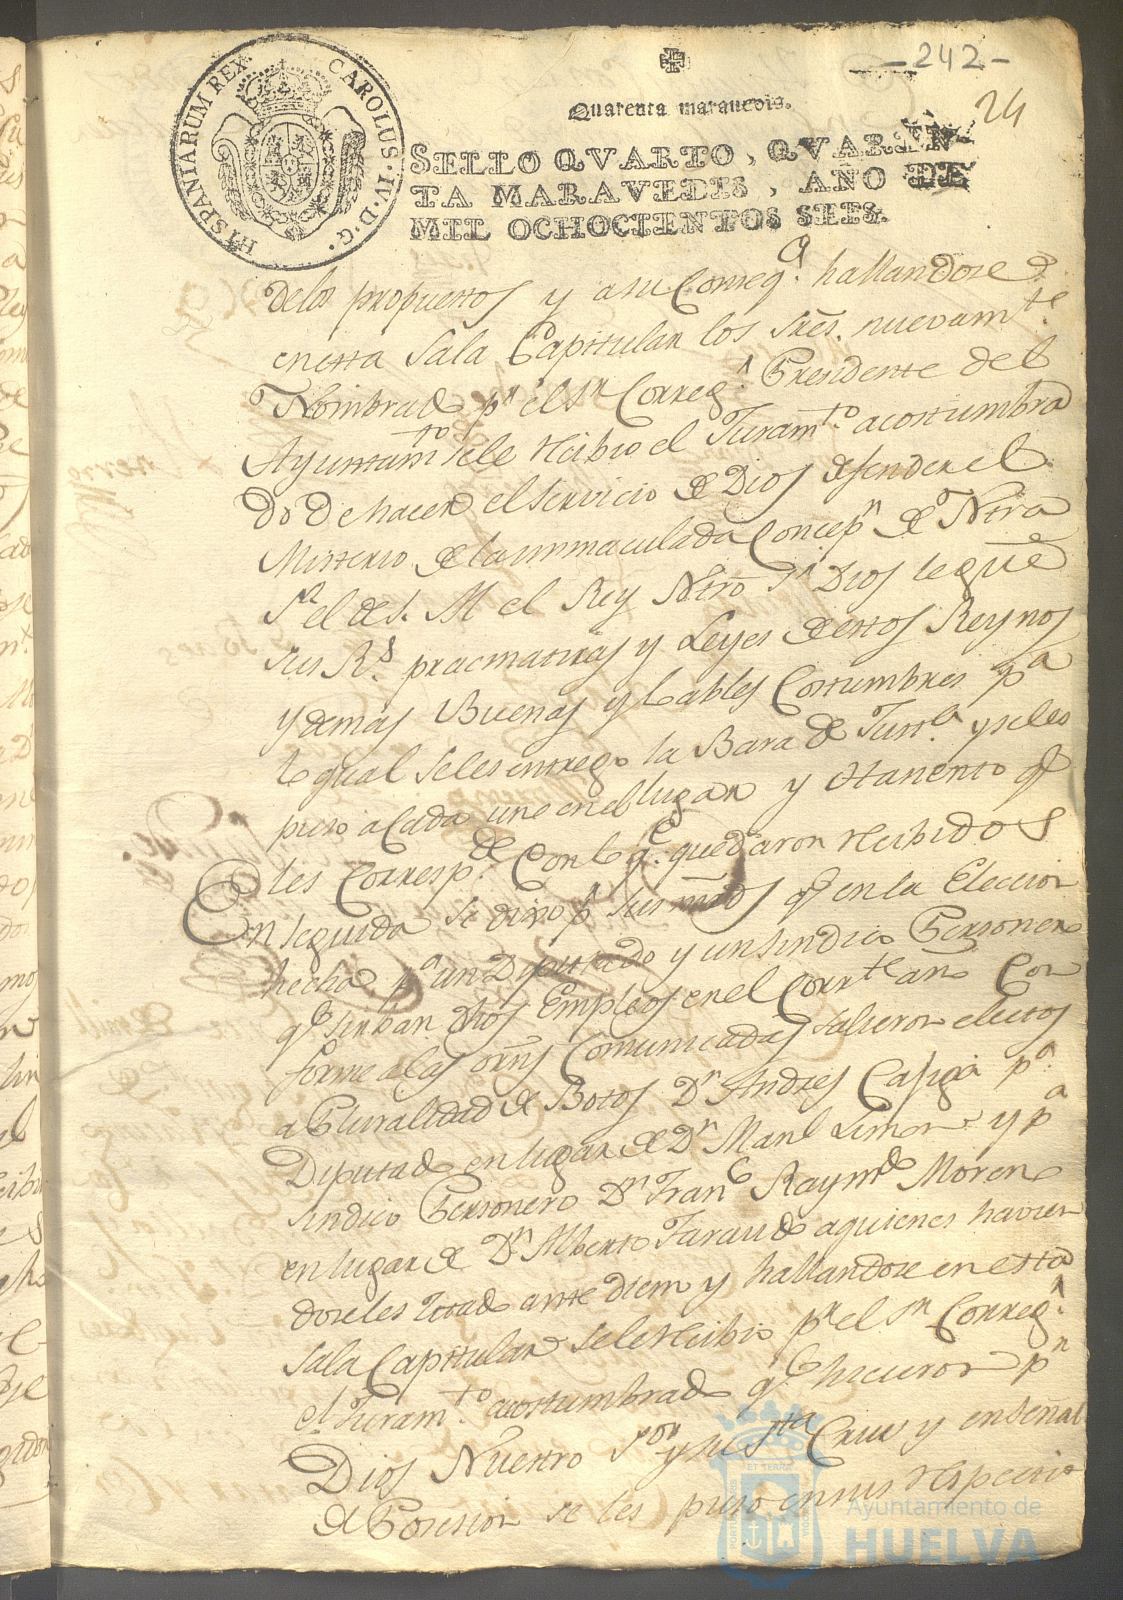 -242-
24
HISPANIARUM REX. CAROLUS·IV·D·G·
Quarenta marauedis.
SELLO QVARTO, QVAREN
TA MARAVEDIS, AÑO DE
MIL OCHOCIENTOS SEIS.
delos propuestos y a su Conseq.ª hallandose
en esta Sala Capitular los Sres. nuevam.te
Nombrad p.r el S.r Correg.r Presidente del
Ayuntam.to sele recibio el Juram.to acostumbra
do De hacer el servicio de Dios defender el
Misterio de la immaculada Concep.n de Ntra
S.ra el de S. M el Rey Ntro S.r Dios le gue
sus R.s pracmaticas y Leyes de estos Reynos
y demas Buenas y loables Costumbres p.a
lo qual seles entrego la Bara de Just.a y seles
puso a Cada uno en el lugar y Asiento q.e
les Corresp.de Con lo q.e quedaron recibidos
En seguida se dixo p.r sus mrds q.e en la Eleccion
hecha p.a un Diputado y un sindico Personero
q.e sirban dhos Empleos en el Corr.te año Con
forme a las orns Comunicadas salieron electos
a Pluralidad de Botos D.n Andres p.a
Diputado en lugar de D.n Man.l Limon y p.a
sindico Personero D.n Fran.co Raym.do Moreno
en lugar de D.n Alberto a quienes havien
doseles citado ante diem y hallandose en esta
Sala Capitular sele recibio p.r el S.r Correg.r
el Juram.to acostumbrado q.e hicieron p.r
Dios Nuestro S.or y su S.ta Cruz y en señal
de Posesion se les puso en sus respecti
Ayuntamiento de
HUELVA